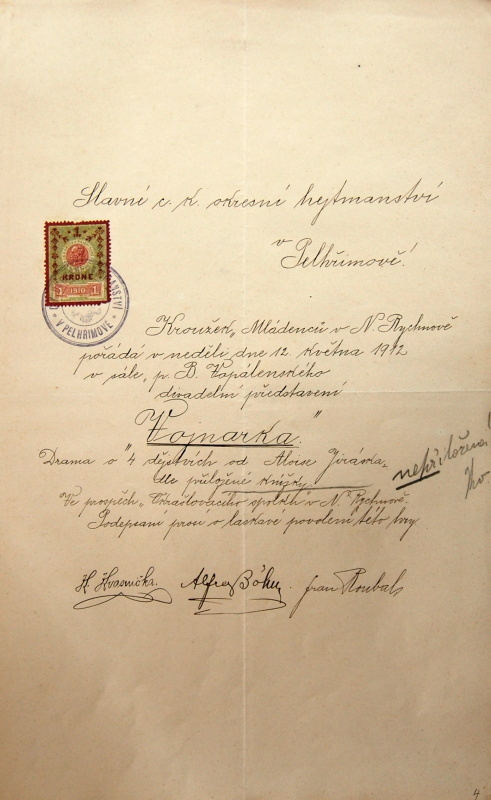 Slavné c. k. okresní hejtmanství
v
Pelhřimově!
1
KRONE
1 1910 1
V PELHŘIMOVĚ
Kroužek „Mládenců v N. Rychnově
pořádá v neděli dne 12. května 1912
v sále „p. B. Vopálenského
divadelní představení
„Vojnarka."
Drama o „4 dějstvích od Aloise Jiráska„
dle přiložené knížky
nepřiložena!
Ve prospěch „Okrašlovacího spolku v N. Rychnově.
Podepsaní prosí o laskavé povolení této hry
H. Hvasnička. Alfred Böhm. Jan Roubal
4